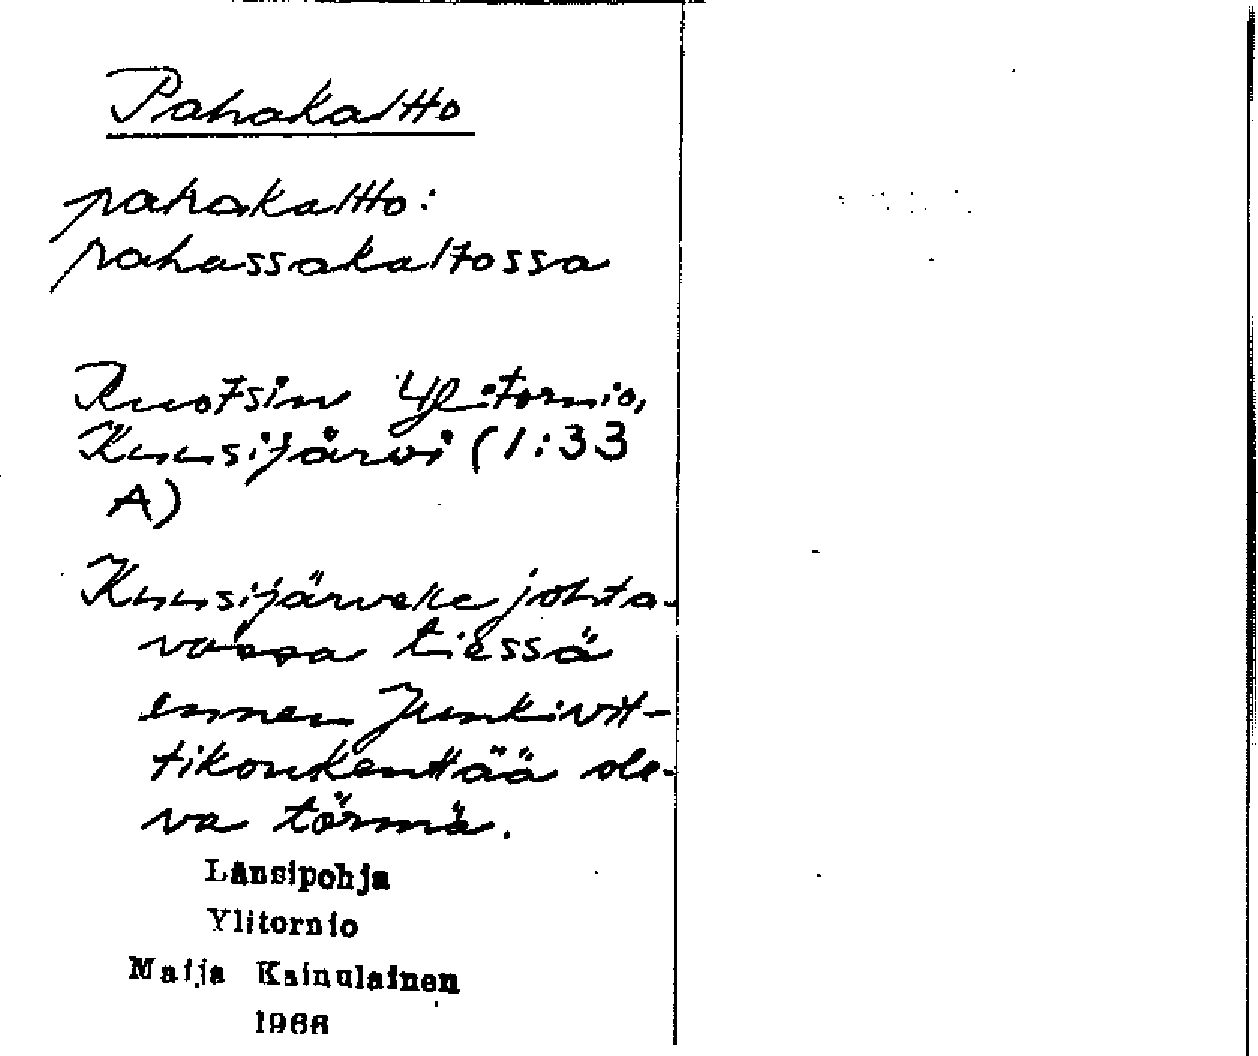 Pahakaltto
pahakaltto:
pahassakaltossa
Ruotsin Ylitornio,
Kuusijärvi (1:33
A)
Kuusijärvelle johta-
vassa tiessä
ennen Junkivit-
tikonkenttää ole-
va törmä.
Länsipohja
Ylitornio
Maija Kainulainen
1966